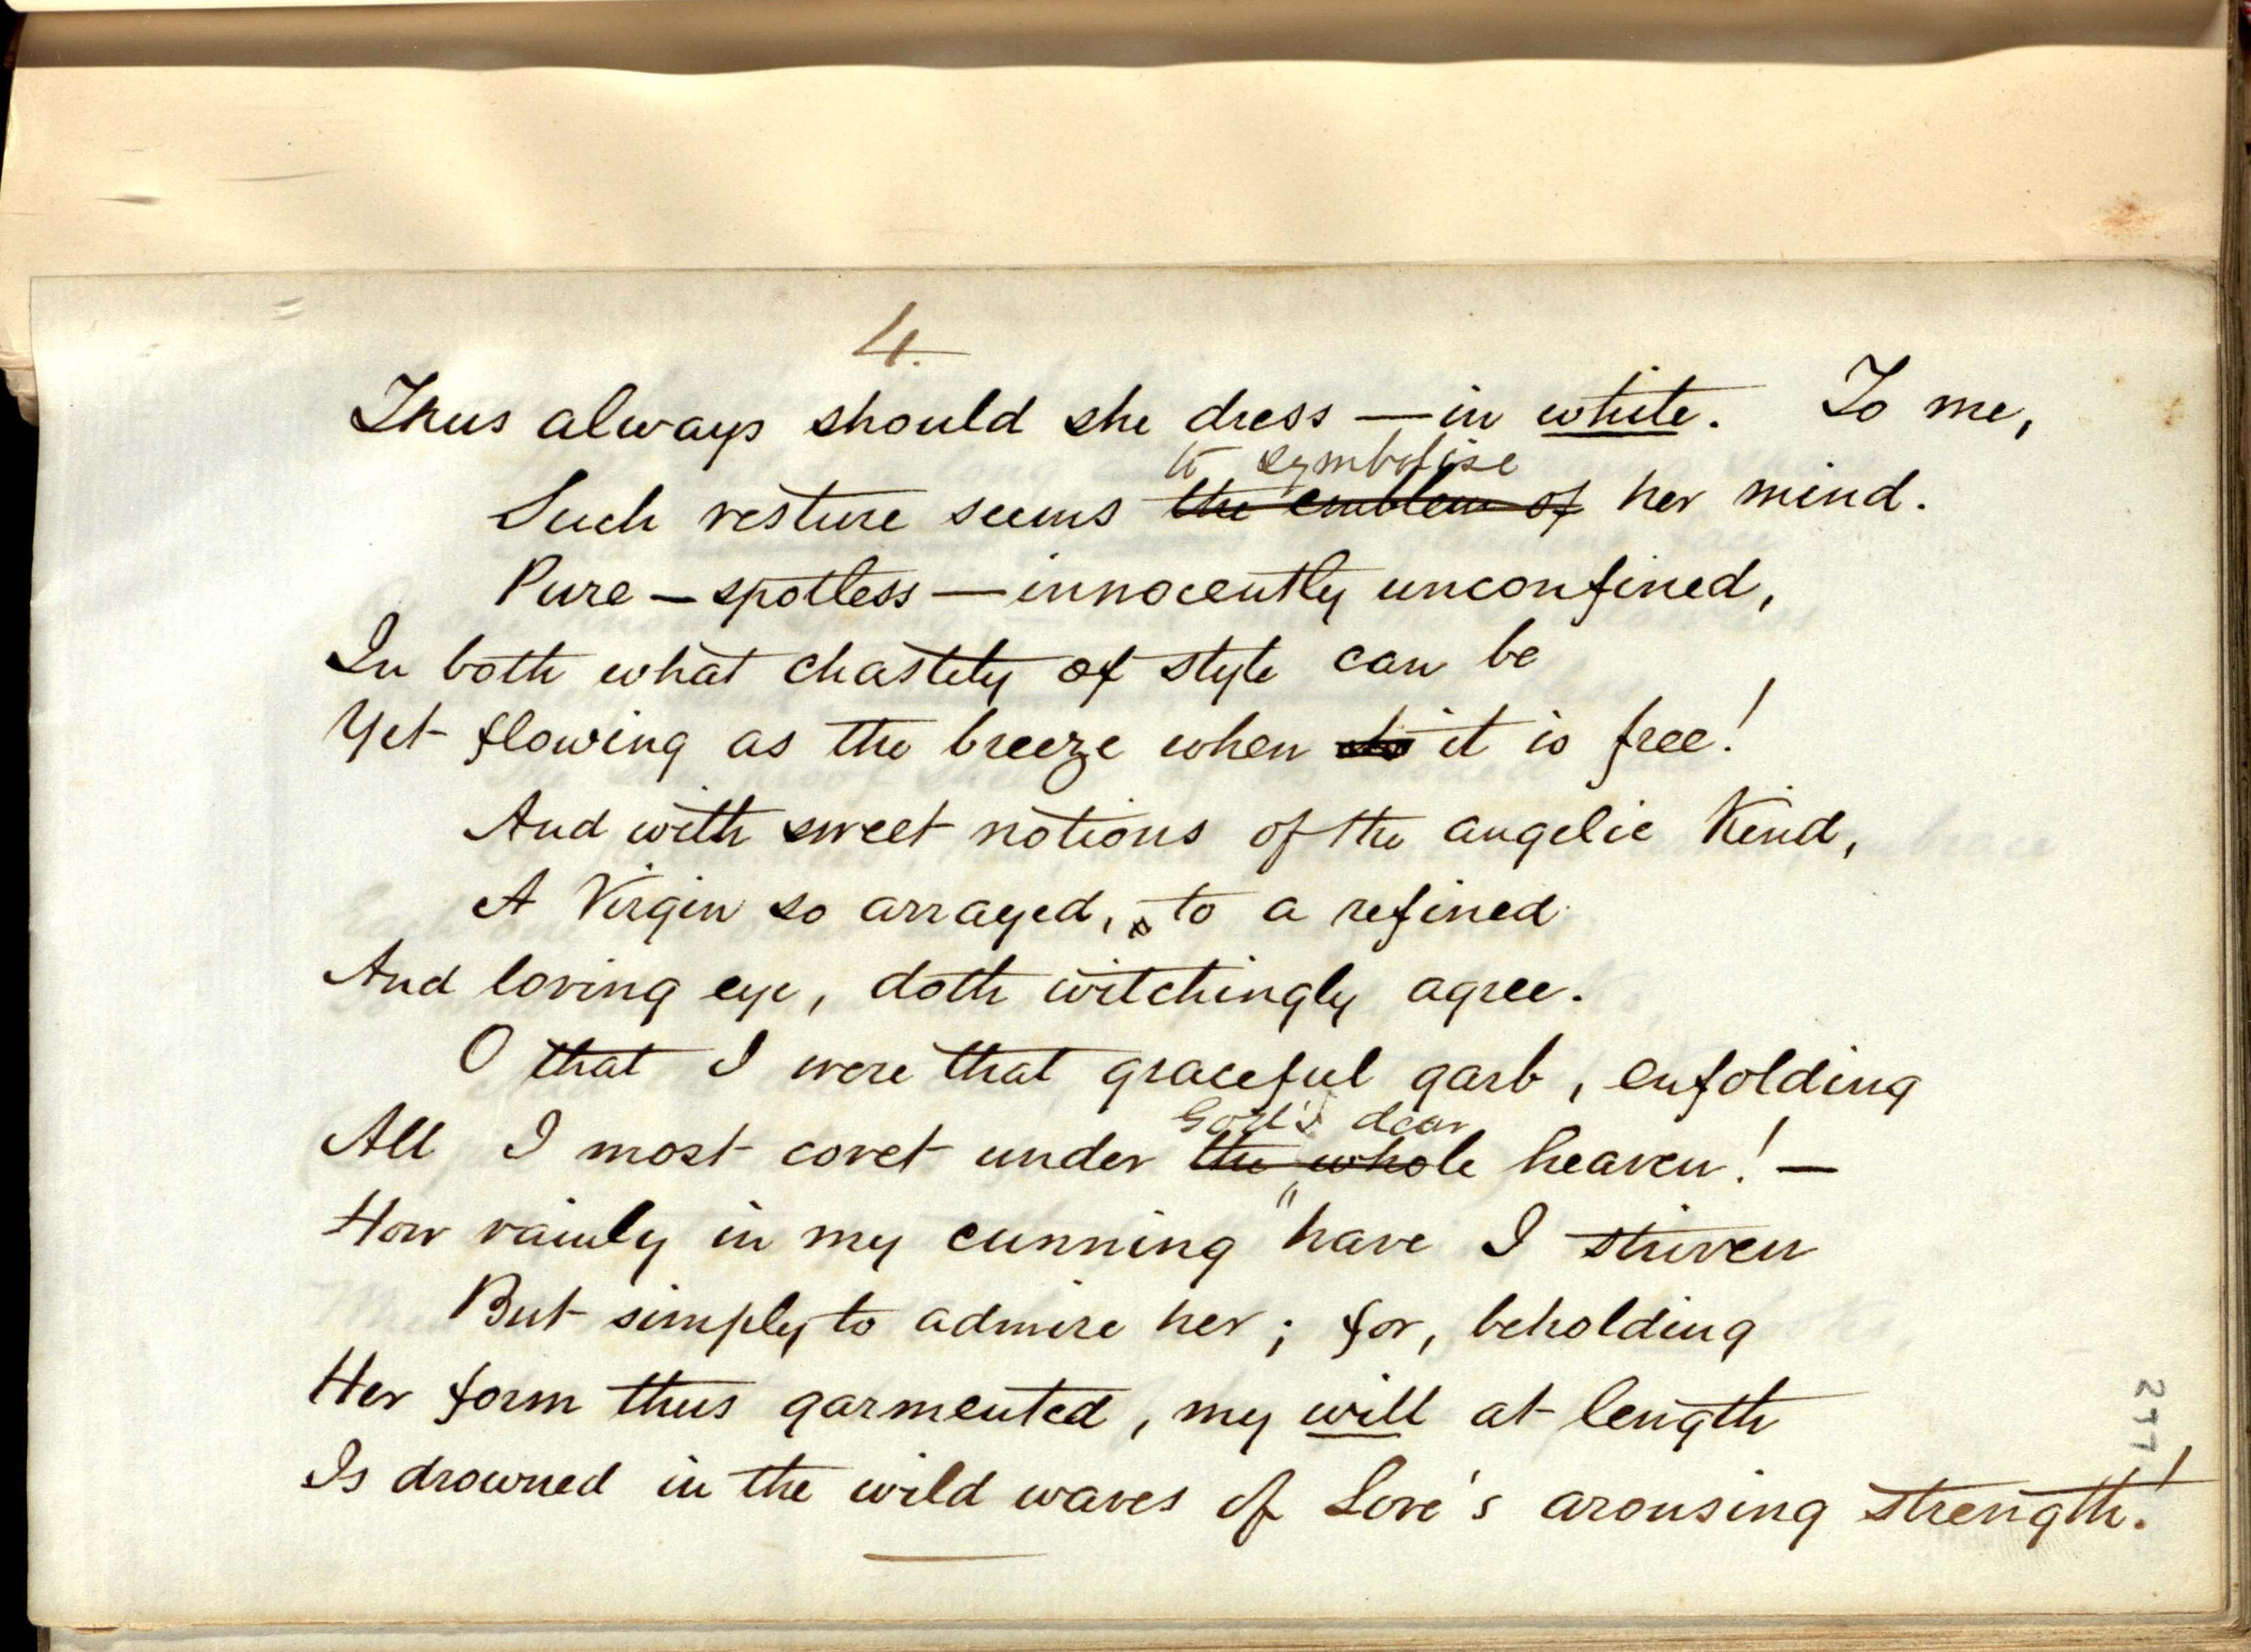 4.
Thus always should she dress — in white. To me,
to symbolise
Such vesture seems the emblem of her mind.
Pure — spotless — innocently unconfined,
In both what chastity of style can be
Yet flowing as the breeze when it is free!
And with sweet notions of the angelic Kind,
A Virgin so arrayed, to a refined
And loving eye, doth witchingly agree.
O that I were that graceful garb, enfolding
God's dear
All I most covet under the whole heaven! —
How vainly in my cunning have I striven
But simply to admire her; for, beholding
Her form thus garmented, my will at length
Is drowned in the wild waves of Love's arousing strength!
277